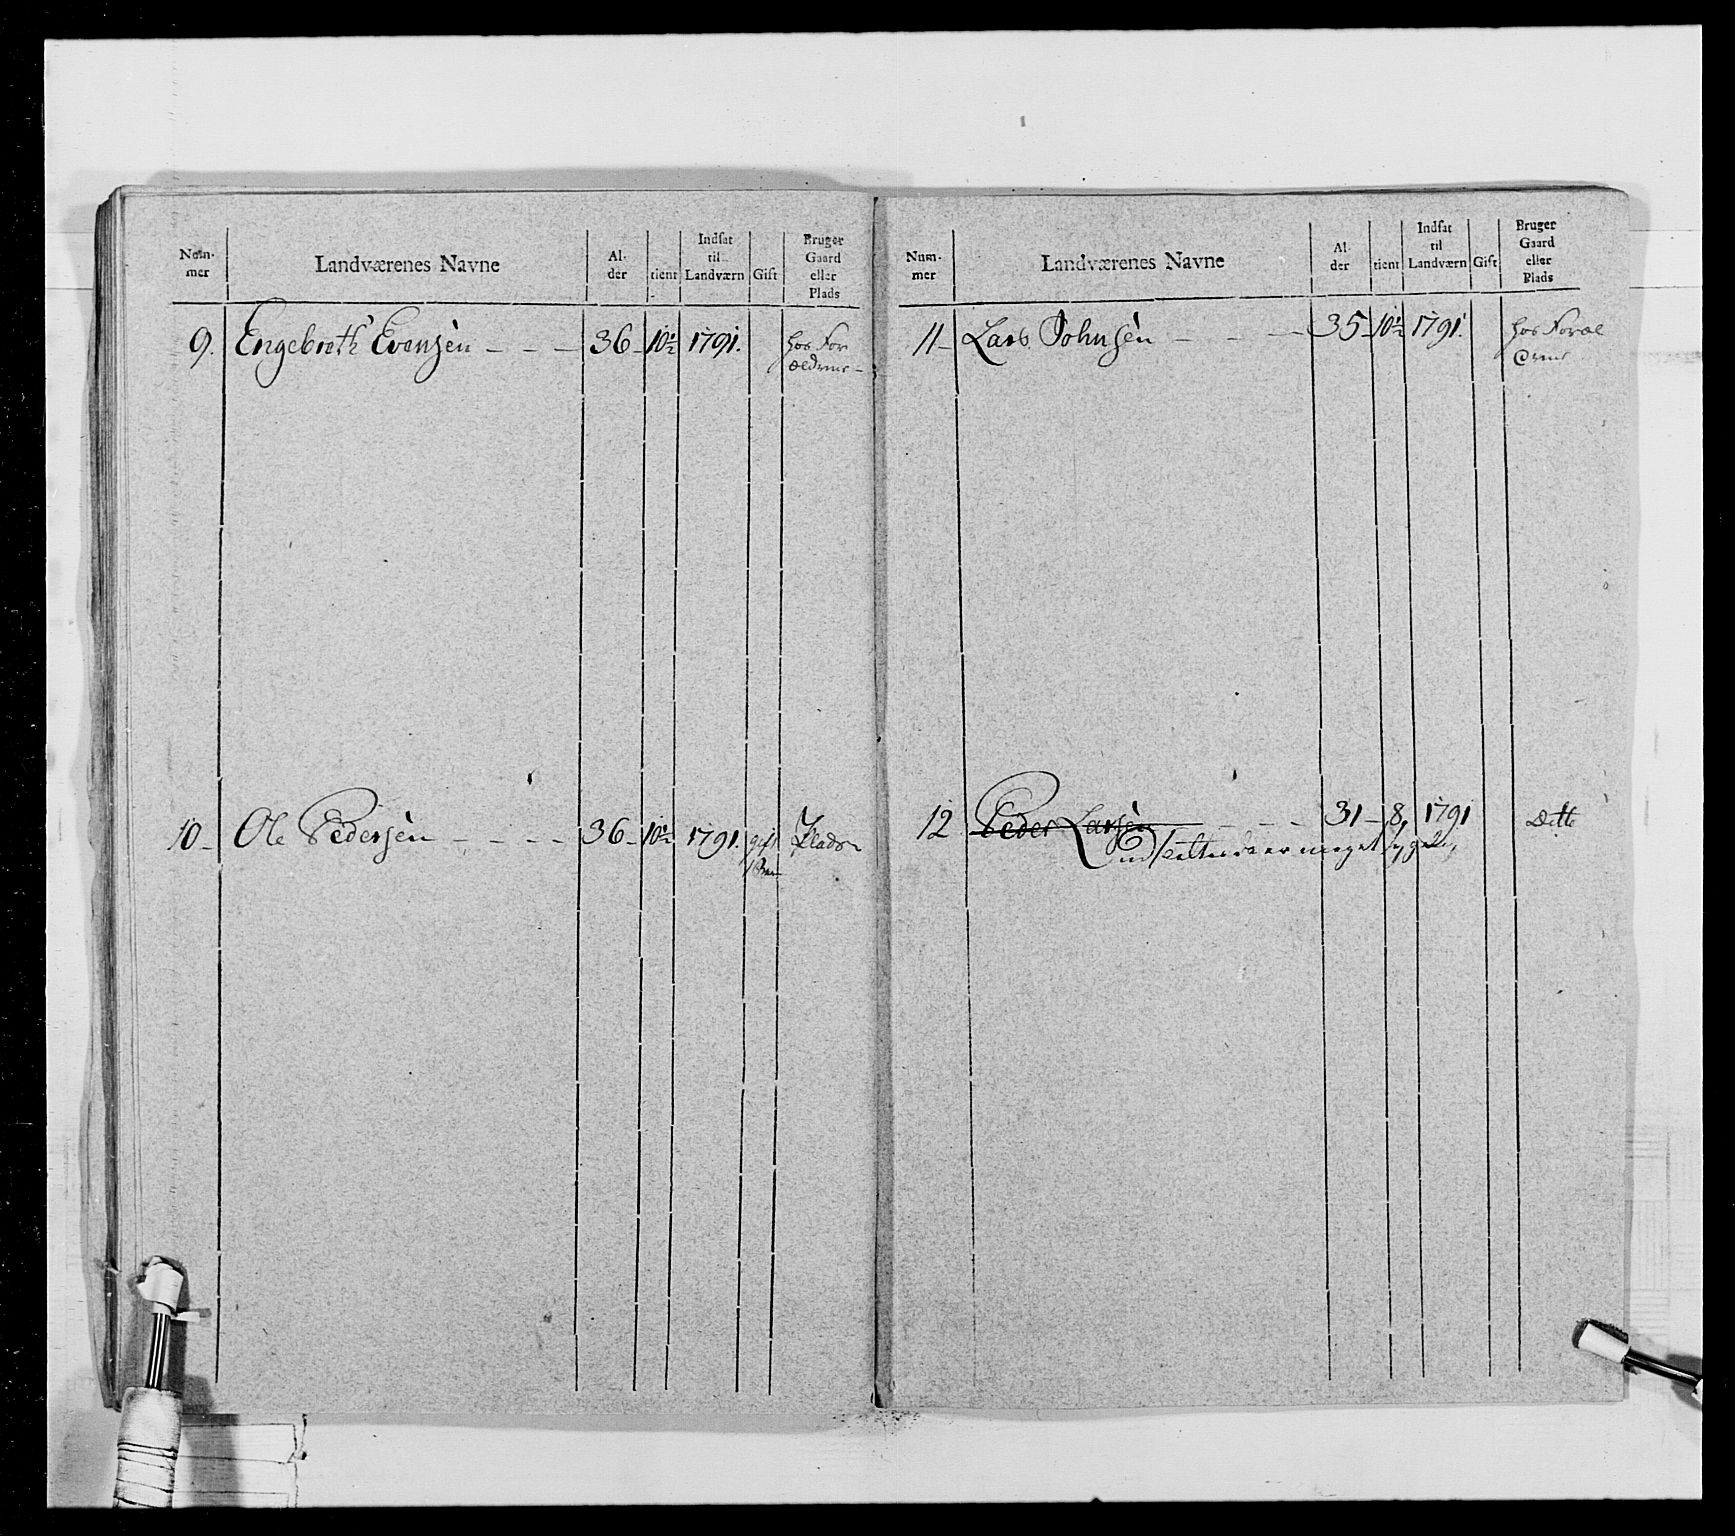 Num-mer | Landværenes Navne | Al-der | tient | Indsat til Landværn | Gift | Bruger Gaard eller Plads
9. Engebreth Evensen - - - 36 - 10½ 1791. hos For
ældrene -
10 - Ole Pedersen - - - - 36 - 10½ 1791. gift Plads
1 Barn
Num-mer | Landværenes Navne | Al-der | tient | Indsat til Landværn | Gift | Bruger Gaard eller Plads
11 - Lars Johnsen - - - 35 - 10½ 1791. hos Foræl
drene
12 Peder Larsen - - - 31 - 8, 1791 Ditto
er meget